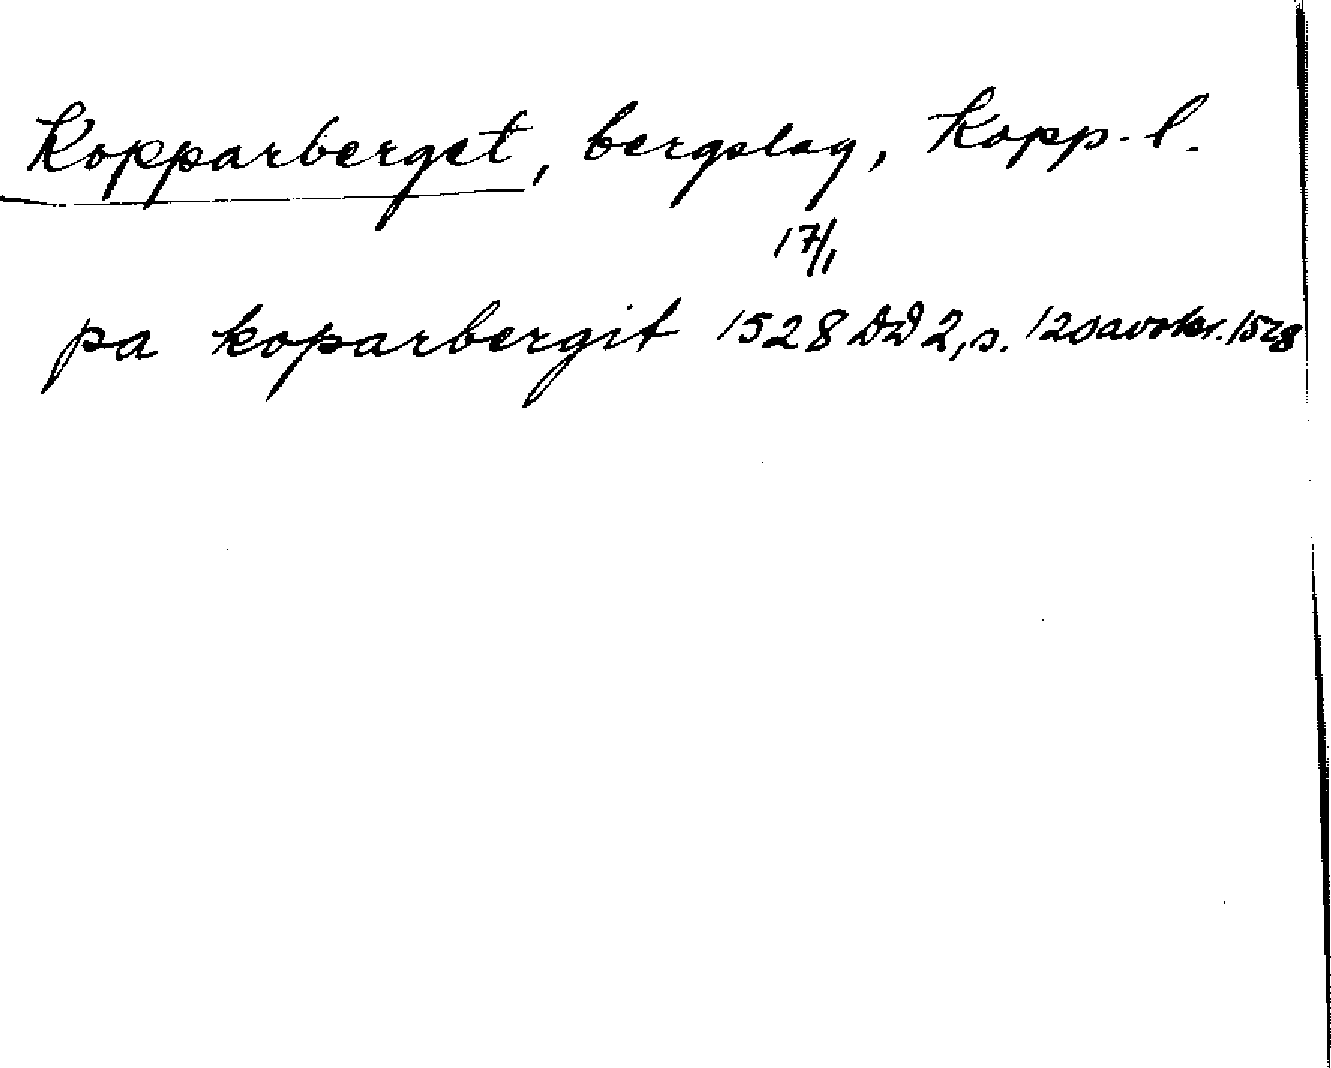 Kopparberget, bergslag, Kopp. l.
17/1
pa koparbergit 1528 DD 2, s. 120 avskr. 1528